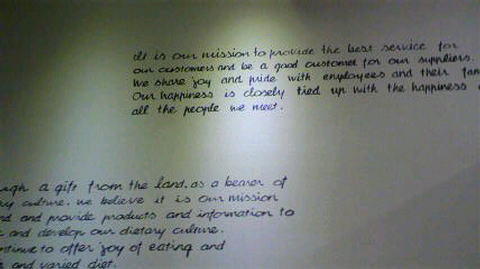 It is our mission to provide the best service for
our customers and be a good customer for our suppliers.
We share joy and pride with employees and their
Our happiness is closely tied up with the happiness
all the people we meet.
a gift from the land. as a bearer of
culture. we believe it is our mission
and provide products and information to
and develop our dietary culture.
to offer joy of eating and
and varied diet.